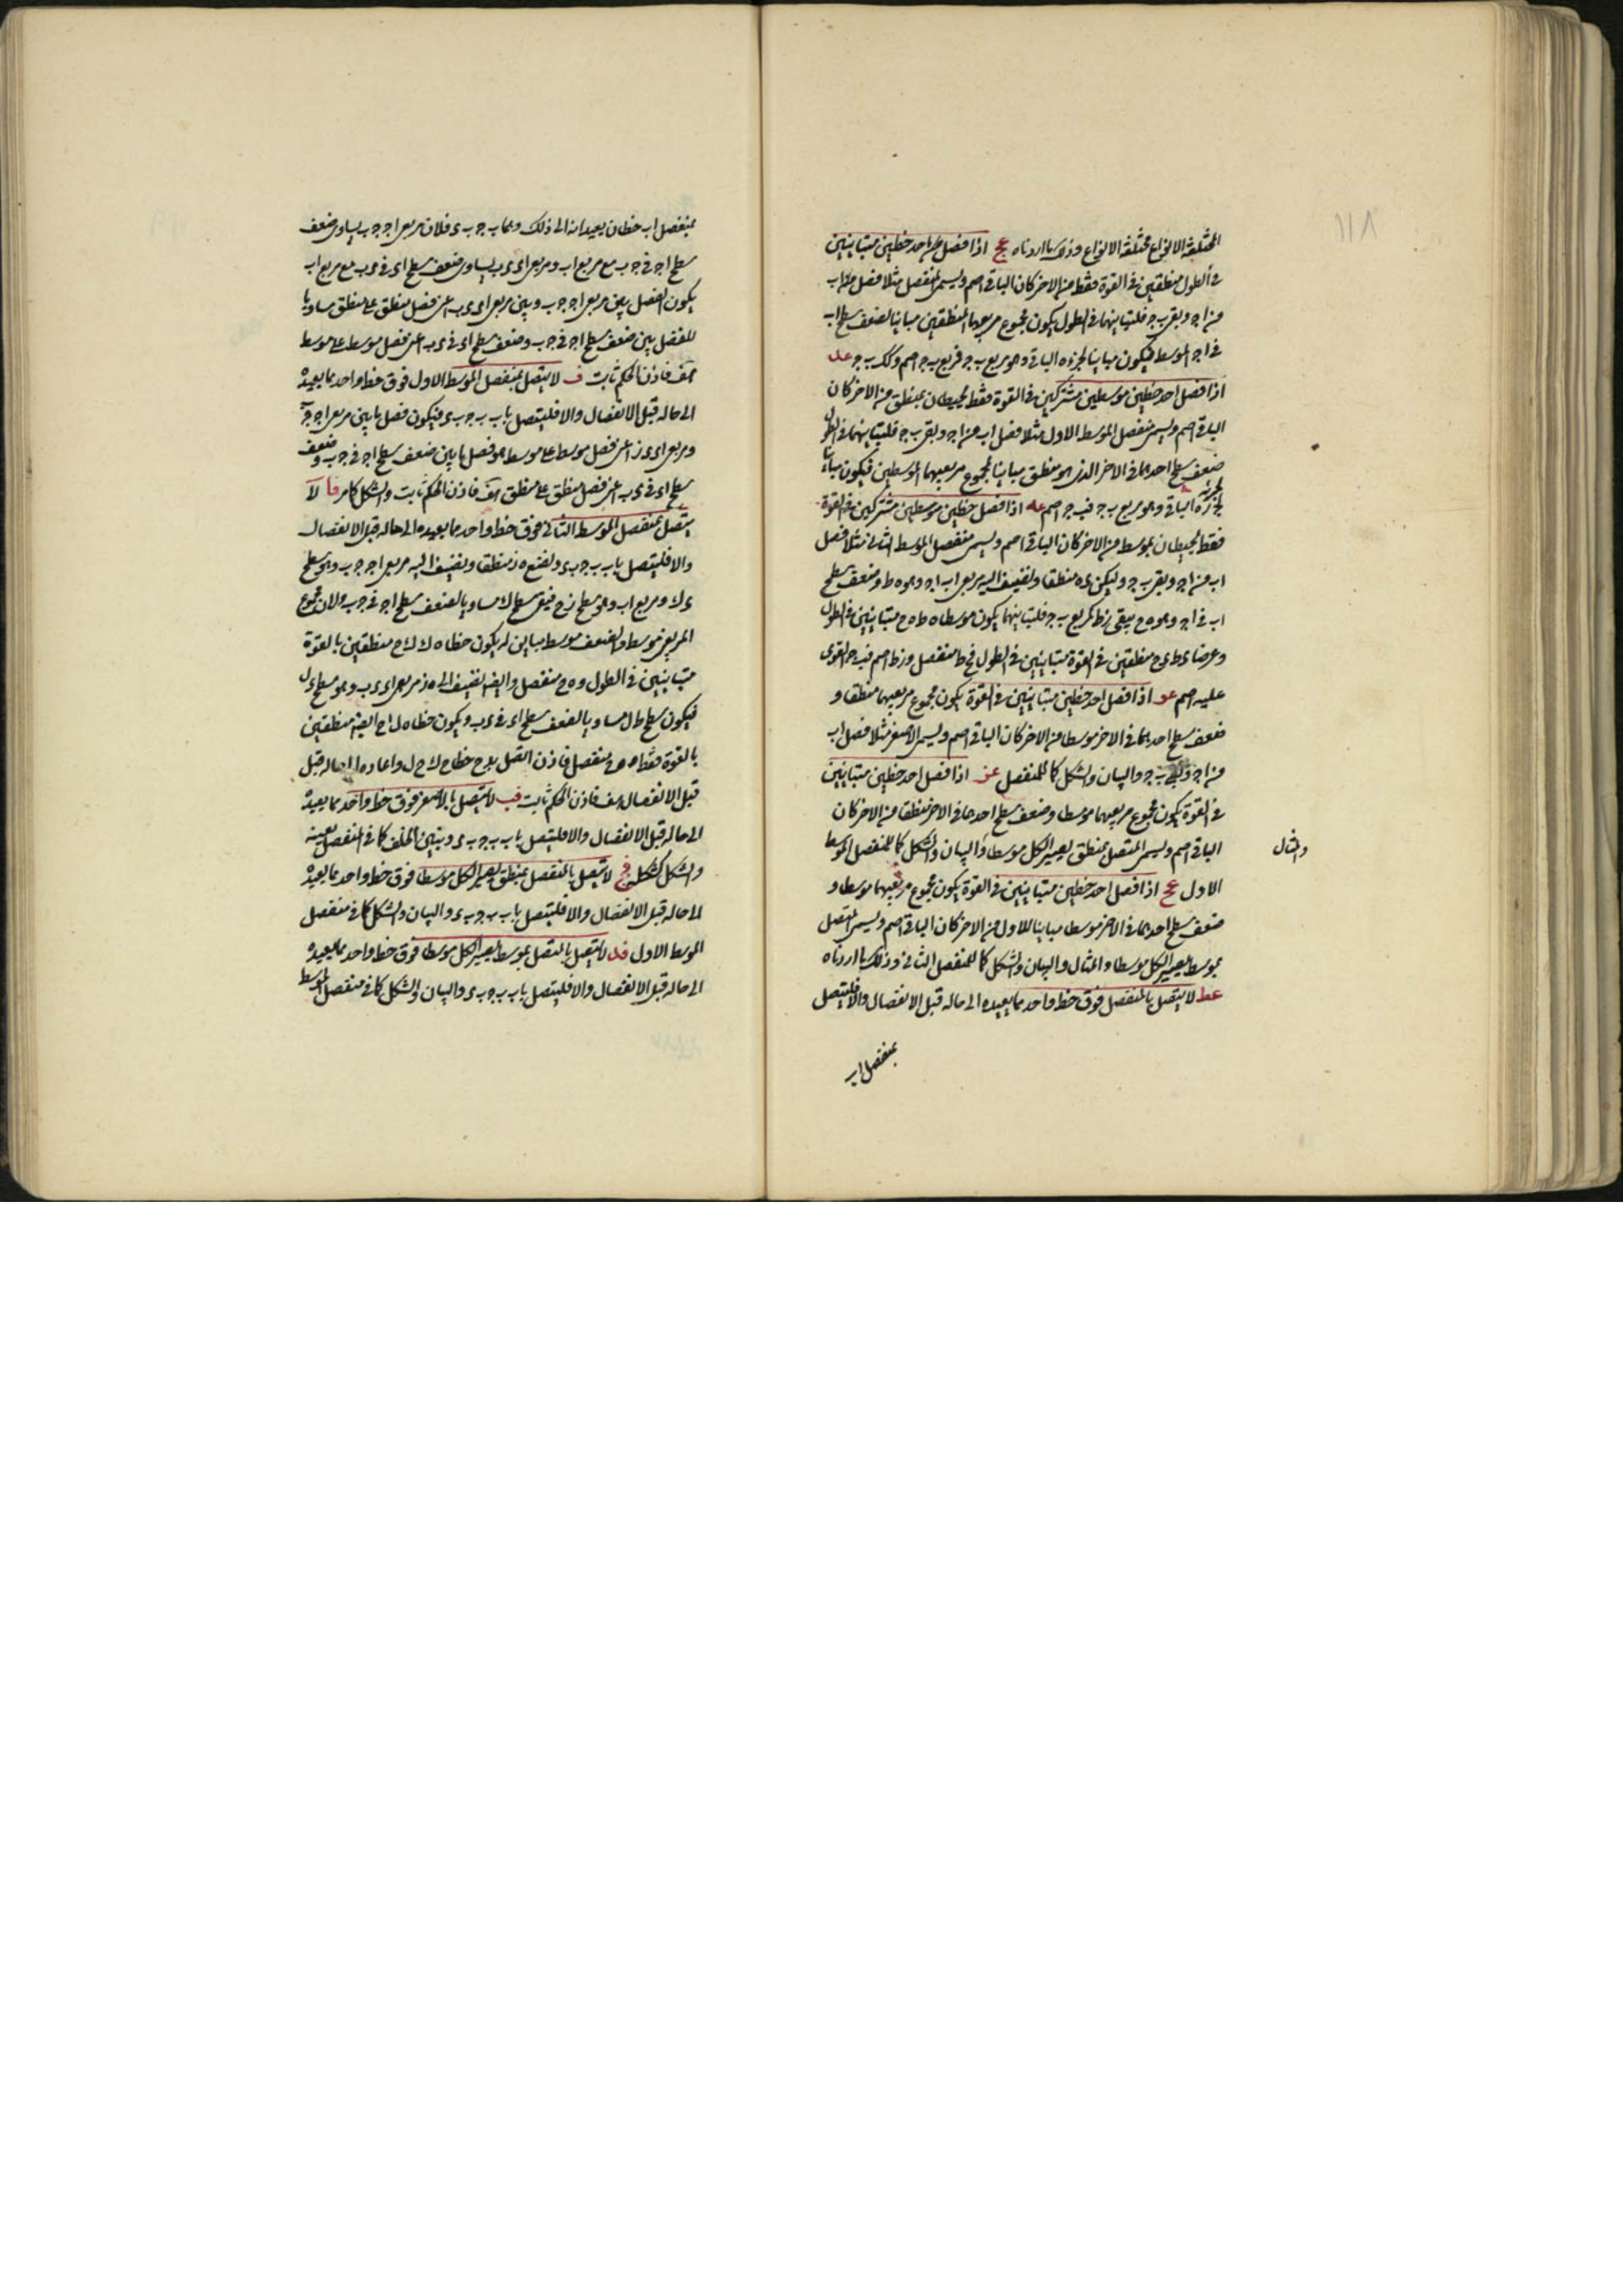 ١١٨
المختلفة الانواع مختلفة الانواع وذلك ما اردناه عج اذا فصل من احد خطين متباينين
فى الطول منطقين فى القوة فقط من الاخر كان الباقى اصم ويسمى المنفصل مثلا فصل من اب
من اج وبقى ب ج فلتباينهما فى الطول يكون مجموع مربعيهما المنطقين مباينا لضعف سطح اب
فى اج الموسط فيكون مباينا لجزءه الباقى وهو مربع ب ج فمربع ب ج اصم وكك ب ج عد
اذا فصل احد خطين موسطين مشتركين فى القوة فقط يحيطان بمنطق من الاخر كان
الباقى اصم ويسمى منفصل الموسط الاول مثلا فصل اب من اج وبقى ب ج فلتباينهما فى الطول
ضعف سطح احدهما فى الاخر الذى هو منطق مباينا لمجموع مربعيهما الموسطين فيكون مباينا
لجزءه الباقى وهو مربع ب ج فب ج اصم عه اذا فصل خطين موسطين مشتركين فى القوة
فقط يحيطان بموسط من الاخر كان الباقى اصم ويسمى منفصل الموسط الثانى مثلا فصل
اب من اج وبقى ب ج وليكن ى ه منطقا ولنضيف اليه مربعى اب اج وهو ه ط وضعف سطح
اب فى اج وهو ه ح يبقى ز ط كمربع ب ج فلتباينهما يكون موسطا ه ط ه ح متباينين فى الطول
وعرضا ى ط ى ح منطقين فى القوة متباينين فى الطول فح ط منفصل وز ط اصم فب ج القوى
عليه اصم عو اذا فصل احد خطين متباينين فى القوة يكون مجموع مربعيهما منطقا و
ضعف سطح احدهما فى الاخر موسطا من الاخر كان الباقى اصم ويسمى الاصغر مثلا فصل اب
من اج وبقى ب ج والبيان والشكل كما للمنفصل عز اذا فصل احد خطين متباينين
فى القوة يكون مجموع مربعيهما موسطا وضعف سطح احدهما فى الاخر منطقا من الاخر كان
الباقى اصم ويسمى المتصل بمنطق يصير الكل موسطا والبيان والشكل كما للمنفصل الموسط
والمثال
الاول عح اذا فصل احد خطين متباينين فى القوة يكون مجموع مربعيهما موسطا و
ضعف سطح احدهما فى الاخر موسطا مباينا للاول من الاخر كان الباقى اصم ويسمى المتصل
بموسط يصير الكل موسطا والمثال والبيان والشكل كما للمنفصل الثانى وذلك ما اردناه
عط لا يتصل بالمنفصل فوق خط واحد مما يعيده الى حاله قبل الانفصال والا فليتصل
بمنفصل اب
بمنفصل اب خطان يعيدانه الى ذلك وهما ب ج ب ى فلان مربعى اج ج ب يساوى ضعف
سطح اج فى ج ب مع مربع اب ومربعى اى ى ب يساوى ضعف سطح اى فى ى ب مع مربع اب
يكون الفضل بين مربعى اج ج ب وبين مربعى اى ى ب اعنى فضل منطق على منطق مساويا
للفضل بين ضعف سطح اج فى ج ب وضعف سطح اى فى ى ب اعنى فضل موسط على موسط
هف فاذن الحكم ثابت ف لا يتصل بمنفصل الموسط الاول فوق خط واحد مما يعيده
الى حاله قبل الانفصال والا فليتصل باب ب ج ب ى فيكون فضل ما بين مربعى اج ج ب
ومربعى اى ى ز اعنى فضل موسط على موسط هو فضل ما بين ضعف سطح اج فى ج ب وضعف
سطح اى فى ى ب اعنى فضل منطق على منطق هف فاذن الحكم ثابت والشكل كما مر فا لا
يتصل بمنفصل الموسط الثانى فوق خط واحد مما يعيده الى حاله قبل الانفصال
والا فليتصل باب ب ج ب ى ولنضع ه ز منطقا ونضيف اليه مربعى اج ج ب وهو سطح
ى ك ومربع اب وهو سطح ز ح فيبقى سطح ك مساويا لضعف سطح اج فى ج ب ولان مجموع
المربعين موسط والضعف موسط مباين له يكون خطا ه ك ك ح منطقين بالقوة
متباينين فى الطول وه ح منفصل وايضا نضيف الى ه ز مربعى اى ى ب وهو سطح ى ل
فيكون سطح ط ل مساويا لضعف سطح اى فى ى ب ويكون خطا ه ل ل ح ايضا منطقين
بالقوة فقط وه ح منفصل فاذن اتصل به ح خطا ح ك ح ل واعاداه الى حاله قبل
قبل الانفصال هف فاذن الحكم ثابت فب لا يتصل بالاصغر فوق خط واحد مما يعيده
الى حاله قبل الانفصال والا فليتصل باب ب ج ب ى ويتبين الخلف كما فى المنفصل بعينه
والشكل كشكله فج لا يتصل بالمنفصل بمنطق يصير الكل موسطا فوق خط واحد مما يعيده
الى حاله قبل الانفصال والا فليتصل باب ب ج ب ى والبيان والشكل كما فى منفصل
الموسط الاول فد لا يتصل بالمتصل بموسط يصير الكل موسطا فوق خط واحد مما يعيده
الى حاله قبل الانفصال والا فليتصل باب ب ج ب ى والبيان والشكل كما فى منفصل الموسط